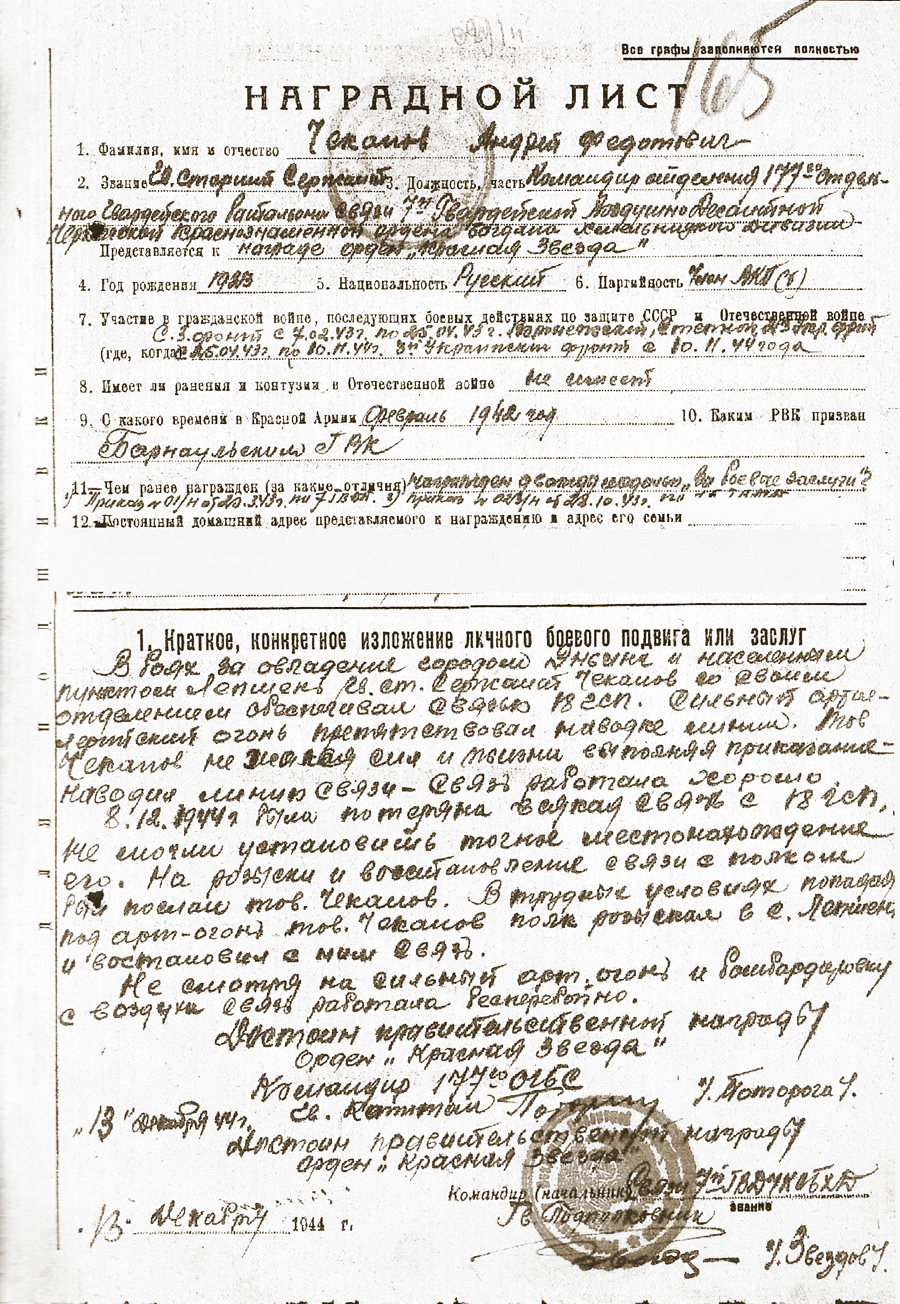 Все графы заполняются полностью
165
НАГРАДНОЙ ЛИСТ
1. Фамилия, имя и отчество Чекалов Андрей Федотович
2. Звание Гв. Старший Сержант 3. Должность, часть Командир отделения 177го Отдель-
ного Гвардейского Батальона связи 7й Гвардейской Воздушно Десантной
Черкасской Краснознаменной ордена Богдана Хмельницкого дивизии
Представляется к награде орден „Красная Звезда"
4. Год рождения 1923 5. Национальность Русский 6. Партийность Член ВКП(б)
7. Участие в гражданской войне, последующих боевых действиях по защите СССР и Отечественной войне
С.З. фронт с 7.02.43г. по 25.04.43г. Степной 2й Укр. фронт
(где, когда) с 25.04.43г. по 10.11.44г. 3й Украинский фронт с 10.11.44 года
8. Имеет ли ранения и контузии в Отечественной войне не имеет
9. С какого времени в Красной Армии Февраль 1942 год 10. Каким РВК призван
Барнаульским ГВК
11. Чем ранее награжден (за какие отличия) Награжден дважды медалью „За боевые заслуги"
1) Приказ № 01/н 2) приказ № от 28.10.43г.
12. Постоянный домашний адрес представляемого к награждению и адрес его семьи
Д Л Я П О Д Ш И В К И
1. Краткое, конкретное изложение личного боевого подвига или заслуг
В боях за овладение городом Эньинг и населенным
пунктом Лепшень Гв. ст. Сержант Чекалов со своим
отделением обеспечивал связью 18 гсп. Сильный артил-
лерийский огонь препятствовал наводке линии. Тов
Чекалов не жалея сил и жизни выполняя приказание
наводил линию связи – Связь работала хорошо.
8.12.1944г была потеряна всякая связь с 18 гсп,
не смогли установить точное местонахождение
его. На розыски и восстановление связи с полком
был послан тов. Чекалов. В трудных условиях попадая
под арт-огонь тов. Чекалов полк розыскал в с. Лепшень
и востановил с ним связь.
Не смотря на сильный арт. огонь и бомбардировку
с воздуха связь работала бесперебойно.
Достоин правительственной награды
Орден „Красная Звезда"
Командир 177го ОГБС
Гв. Капитан /Поторога/.
„13" Декабря 44г.
Достоин правительственной награды
орден „Красная Звезда"
Командир (начальник) Связи 7й
звание
Гв. Подполковник
„13" Декабря 1944 г.
/Звездов/.